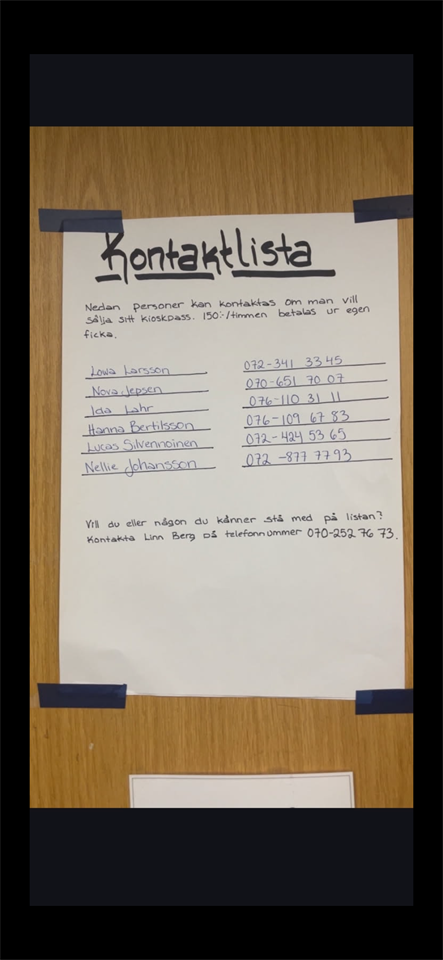 Kontaktlista
Nedan personer kan kontaktas om man vill
sälja sitt kioskpass. 150:-/timmen betalas ur egen
ficka.
Lowa Larsson 072-341 33 45
Nova Jepsen 070-651 70 07
Ida Lahr 076-110 31 11
Hanna Bertilsson 076-109 67 83
Lucas Silvennoinen 072-424 53 65
Nellie Johansson 072-877 77 93
Vill du eller någon du känner stå med på listan?
Kontakta Linn Berg på telefonnummer 070-252 76 73.